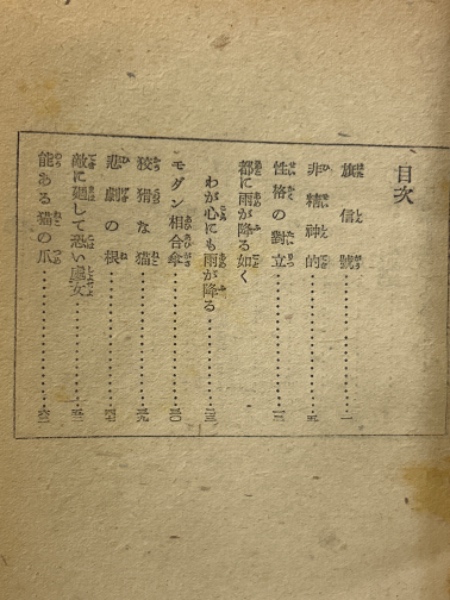 目次
旗信號……一
非精神的……五
性格の對立……一三
都に雨が降る如く
わが心にも雨が降る……二三
モダン相合傘……三〇
狡猾な猫……三九
悲劇の根……四七
敵に廻して恐い處女……五二
能ある猫の爪……六二